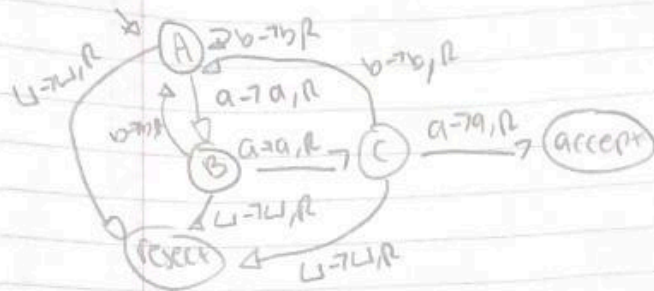 A
b→b,R
⊔→⊔,R
b→b,R
a→a,R
b→b,R
a→a,R
a→a,R
accept
B
C
⊔→⊔,R
reject
⊔→⊔,R